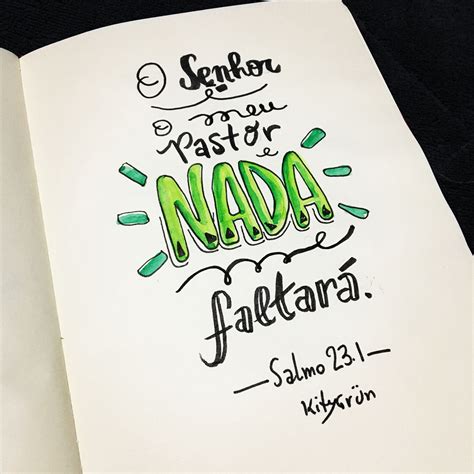 O Senhor
é
o meu
Pastor
e
NADA
me
faltará.
—Salmo 23.1—
Kitygrün